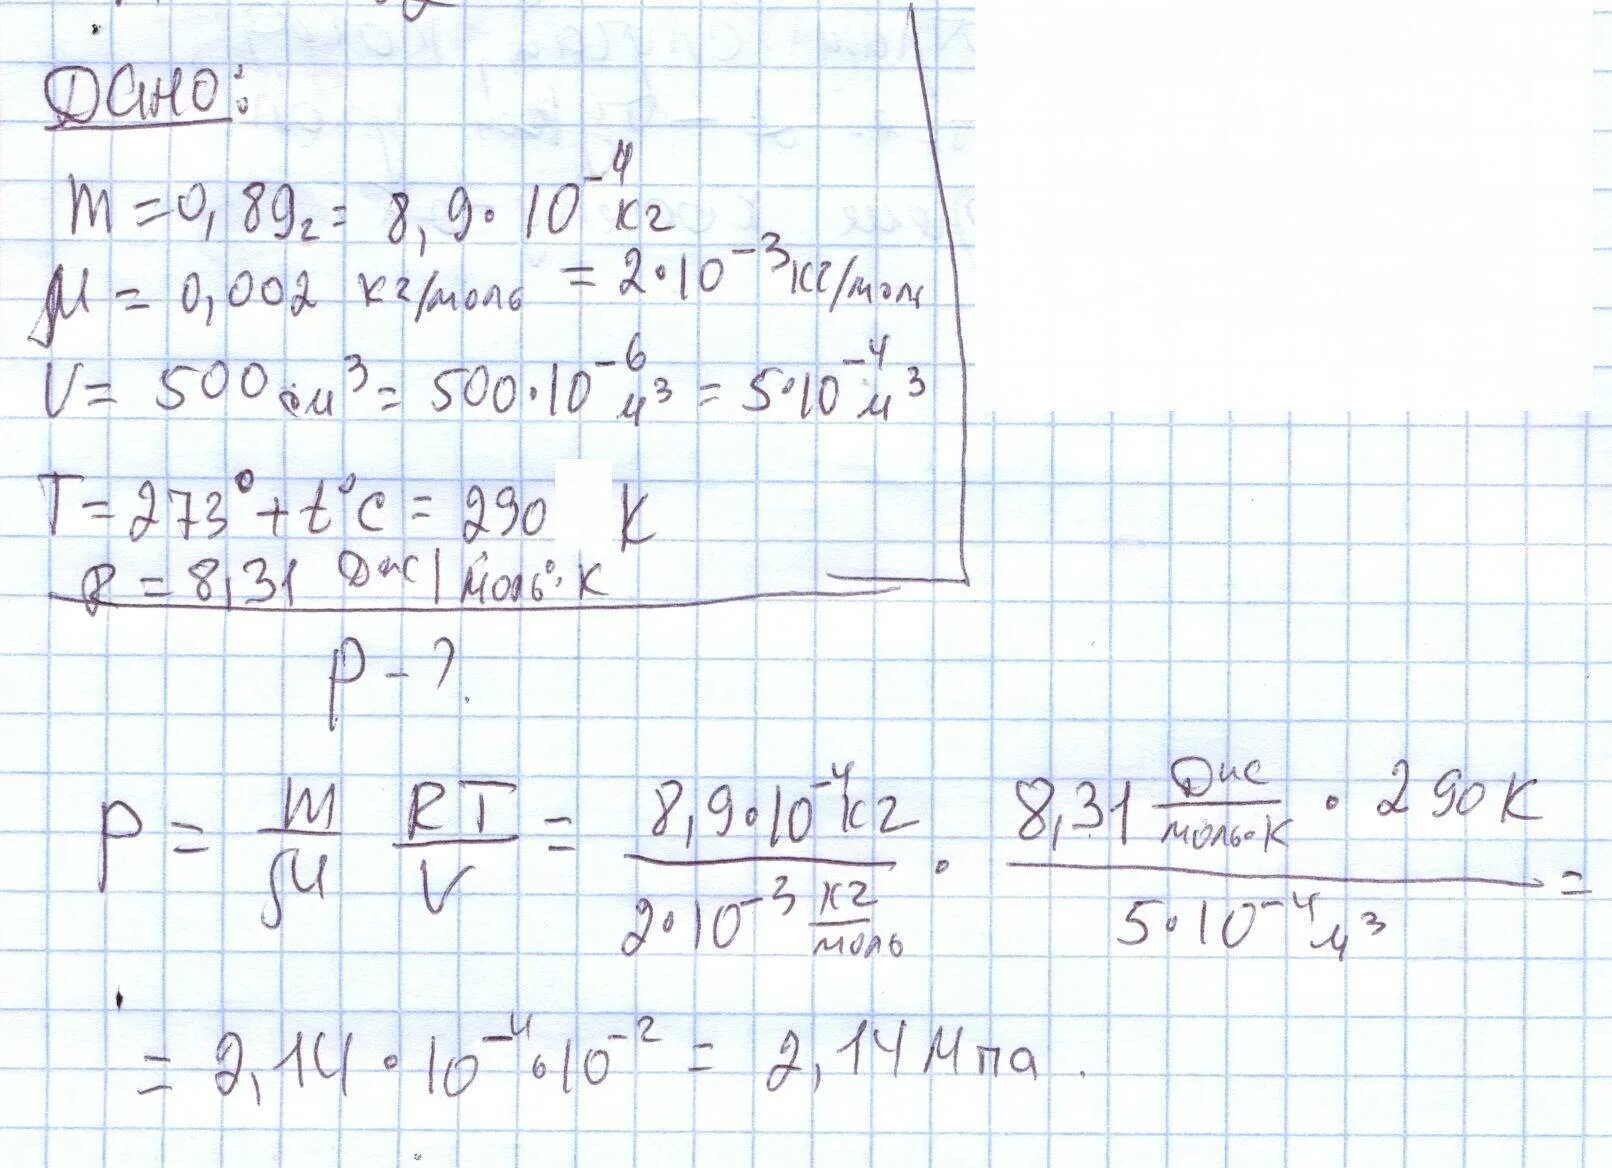 Дано:
m = 0,89г = 8,9·10⁻⁴ кг
μ = 0,002 кг/моль = 2·10⁻³ кг/моль
V = 500 см³ = 500·10⁻⁶ м³ = 5·10⁻⁴ м³
T = 273° + t°C = 290 K
R = 8,31 Дж/моль·К
p - ?
P = m/μ RT/V = 8,9·10⁻⁴ кг / 2·10⁻³ кг/моль · 8,31 Дж/моль·К · 290 К / 5·10⁻⁴ м³ =
= 2,14·10⁻⁴·10⁻² = 2,14 Мпа.